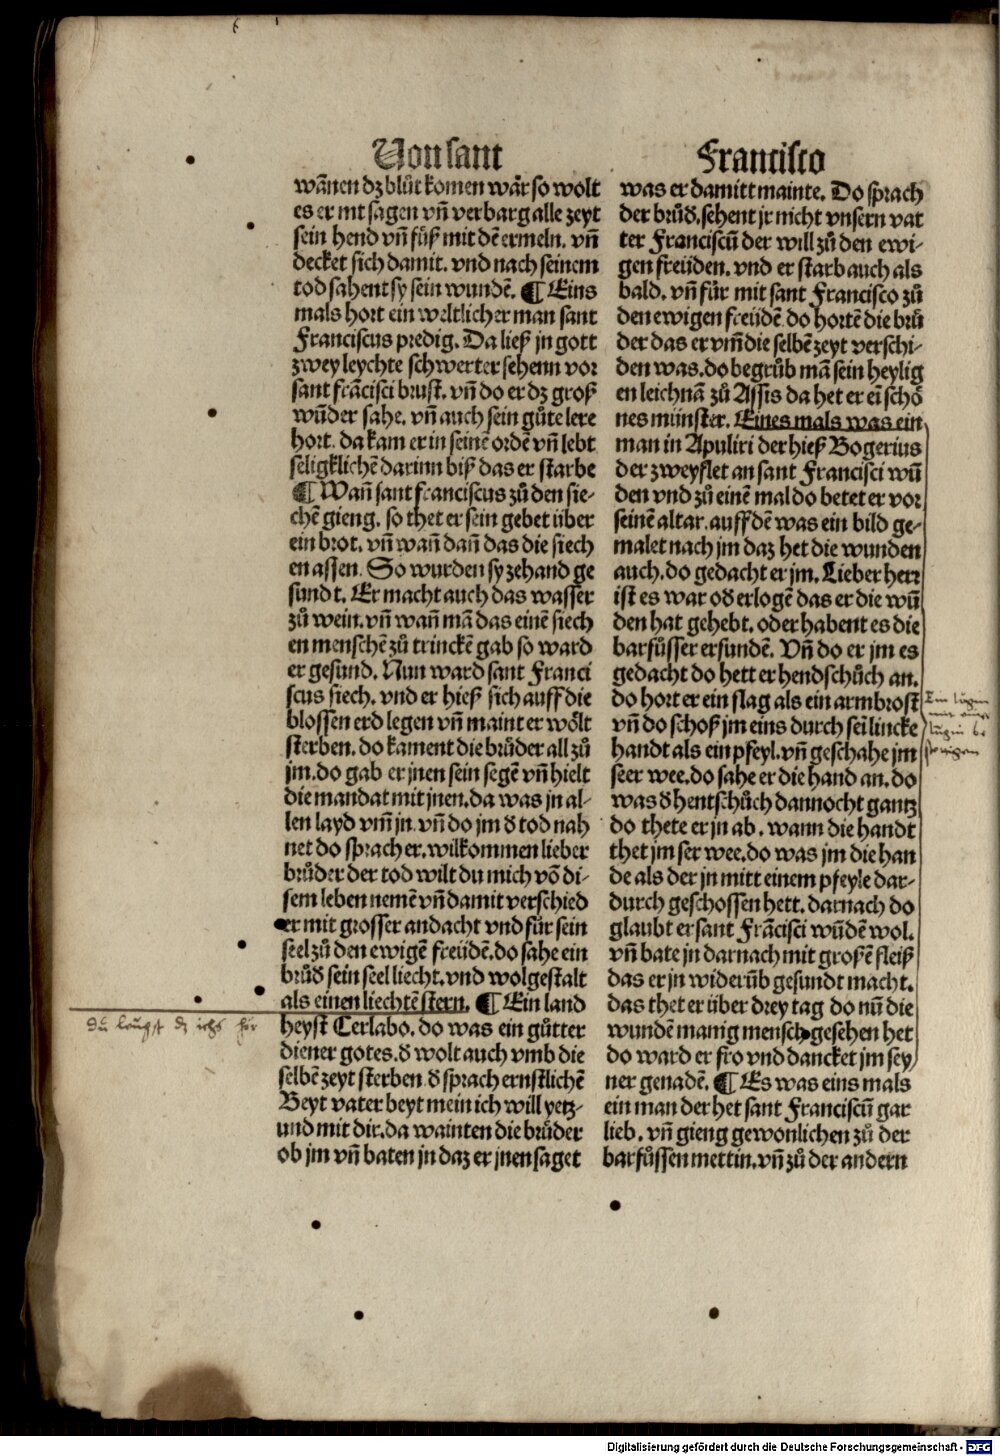 Von sant
wãnen dz blůt komen wär so wolt
es er nit sagen vñ verbarg alle zeyt
sein hend vñ füß mit dẽ ermeln. vñ
decket sich damit. vnd nach seinem
tod sahent sy sein wundẽ. ¶ Eins
mals hort ein weltlicher man sant
Franciscus predig. Da ließ jn gott
zwey leychte schwerter sehenn vor
sant frãcisci brust. vñ do er dz groß
wũder sahe. vñ auch sein gůte lere
hort. da kam er in seinẽ ordẽ vñ lebt
seligklichẽ darinn biß das er starbe
¶ Wañ sant franciscus zů den sie-
chẽ gieng. so thet er sein gebet über
ein brot. vñ wañ dañ das die siech
en assen. So wurden sy zehand ge
sundt. Er macht auch das wasser
zů wein. vñ wañ mã das einẽ siech
en menschẽ zů trinckẽ gab so ward
er gesund. Nun ward sant Franci
scus siech. vnd er hieß sich auff die
blossen erd legen vñ maint er wölt
sterben. do kament die brüder all zů
jm. do gab er jnen sein segẽ vñ hielt
die mandat mit jnen. da was jn al-
len layd vm̃ jn. vñ do jm d tod nah
net do sprach er. wilkommen lieber
brůder der tod wilt du mich võ di-
sem leben nemẽ vñ damit verschied
er mit grosser andacht vnd für sein
seel zů den ewigẽ freüdẽ. do sahe ein
brůd sein seel liecht. vnd wolgestalt
als einen liechtẽ stern. ¶ Ein land
heyst Cerlabo. do was ein gůtter
diener gotes. d wolt auch vmb die
selbẽ zeyt sterben d sprach ernstlichẽ
Beyt vater beyt mein ich will yetz-
und mit dir. da wainten die brüder
ob jm vñ baten jn daz er jnen saget
du leugst dz ichs hör
Francisco
was er damitt mainte. Do sprach
der brůd. sehent jr nicht vnsern vat
ter Franciscũ der will zů den ewi-
gen freüden. vnd er starb auch als
bald. vñ für mit sant Francisco zů
den ewigen freüdẽ do hortẽ die brü
der das er vm̃ die selbẽ zeyt verschi-
den was. do begrůb mã sein heylig
en leichnã zů Assis da het er eĩ schö
nes münster. Eines mals was ein
man in Apuliri der hieß Bogerius
der zweyflet an sant Francisci wũ
den vnd zů einẽ mal do betet er vor
seinẽ altar. auff dẽ was ein bild ge-
malet nach jm daz het die wunden
auch. do gedacht er jm. Lieber herr
ist es war od erlogẽ das er die wũ
den hat gehebt. oder habent es die
barfůsser erfundẽ. Vñ do er jm es
gedacht do hett er hendschůch an.
do hort er ein slag als ein armbrost
vñ do schoß jm eins durch seĩ lincke
handt als ein pfeyl. vñ geschahe jm
seer wee. do sahe er die hand an. do
was d hentschůch dannocht gantz
do thete er jn ab. wann die handt
thet jm ser wee. do was jm die han
de als der jn mitt einem pfeyle dar-
durch geschossen hett. darnach do
glaubt er sant Frãcisci wũdẽ wol.
vñ bate jn darnach mit grosẽ fleiß
das er jn widerũb gesundt macht.
das thet er über drey tag do nũ die
wundẽ manig mensch gesehen het
do ward er fro vnd dancket jm sey
ner genadẽ. ¶ Es was eins mals
ein man der het sant Franciscũ gar
lieb. vñ gieng gewonlichen zů der
barfůssen mettin. vñ zů der andern
Digitalisierung gefördert durch die Deutsche Forschungsgemeinschaft - DFG